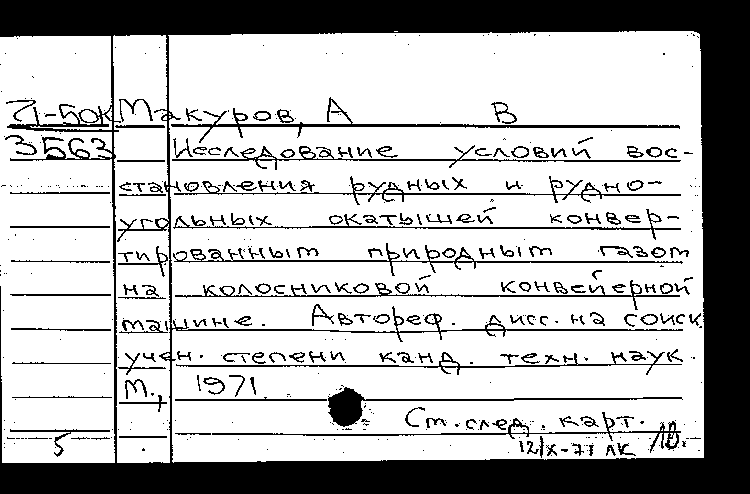 71-50к Макуров, А В
3563 Исследование условий вос-
становления рудных и рудно-
угольных окатышей конвер-
тированным природным газом
на колосниковой конвейерной
машине. Автореф. дисс. на соиск.
учен. степени канд. техн. наук.
М., 1971.
См. след. карт.
5 12/X-71 ЛК